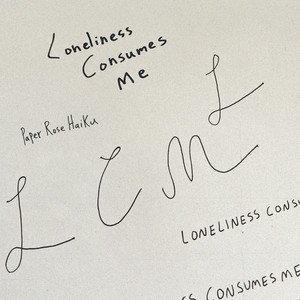 Loneliness
Consumes
Me
Paper Rose Haiku
L
L C M
LONELINESS CONSU
SS CONSUMES ME